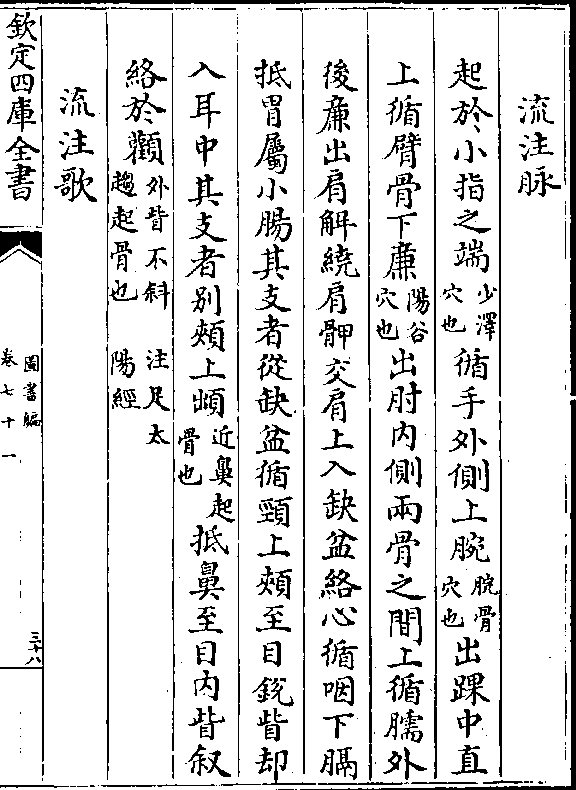 流注脉
起於小指之端少澤穴也循手外側上腕脘骨穴也出踝中直
上循臂骨下廉陽谷穴也出肘内側兩骨之間上循臑外
後廉出肩解繞肩胛交肩上入缺盆絡心循咽下膈
抵胃屬小腸其支者從缺盆循頸上頰至目銳眥却
入耳中其支者别頰上䪼近鼻起骨也抵鼻至目内眥叙
絡於顴外眥不斜趨起骨也 注足太陽經
流注歌
欽定四庫全書
圖書編
卷七十一
三十八